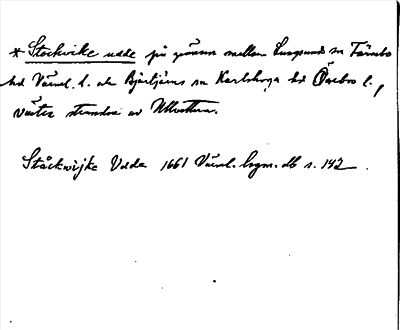 * Stockvike udde på gränsen mellan Lungsund sn Färnebo
hd Värml. l. och Bjurtjärns sn Karlskoga hd Örebro l.,
västra stranden av Ullvettern.
Ståckwijke Udde 1661 Värml. lagm. db s. 142.